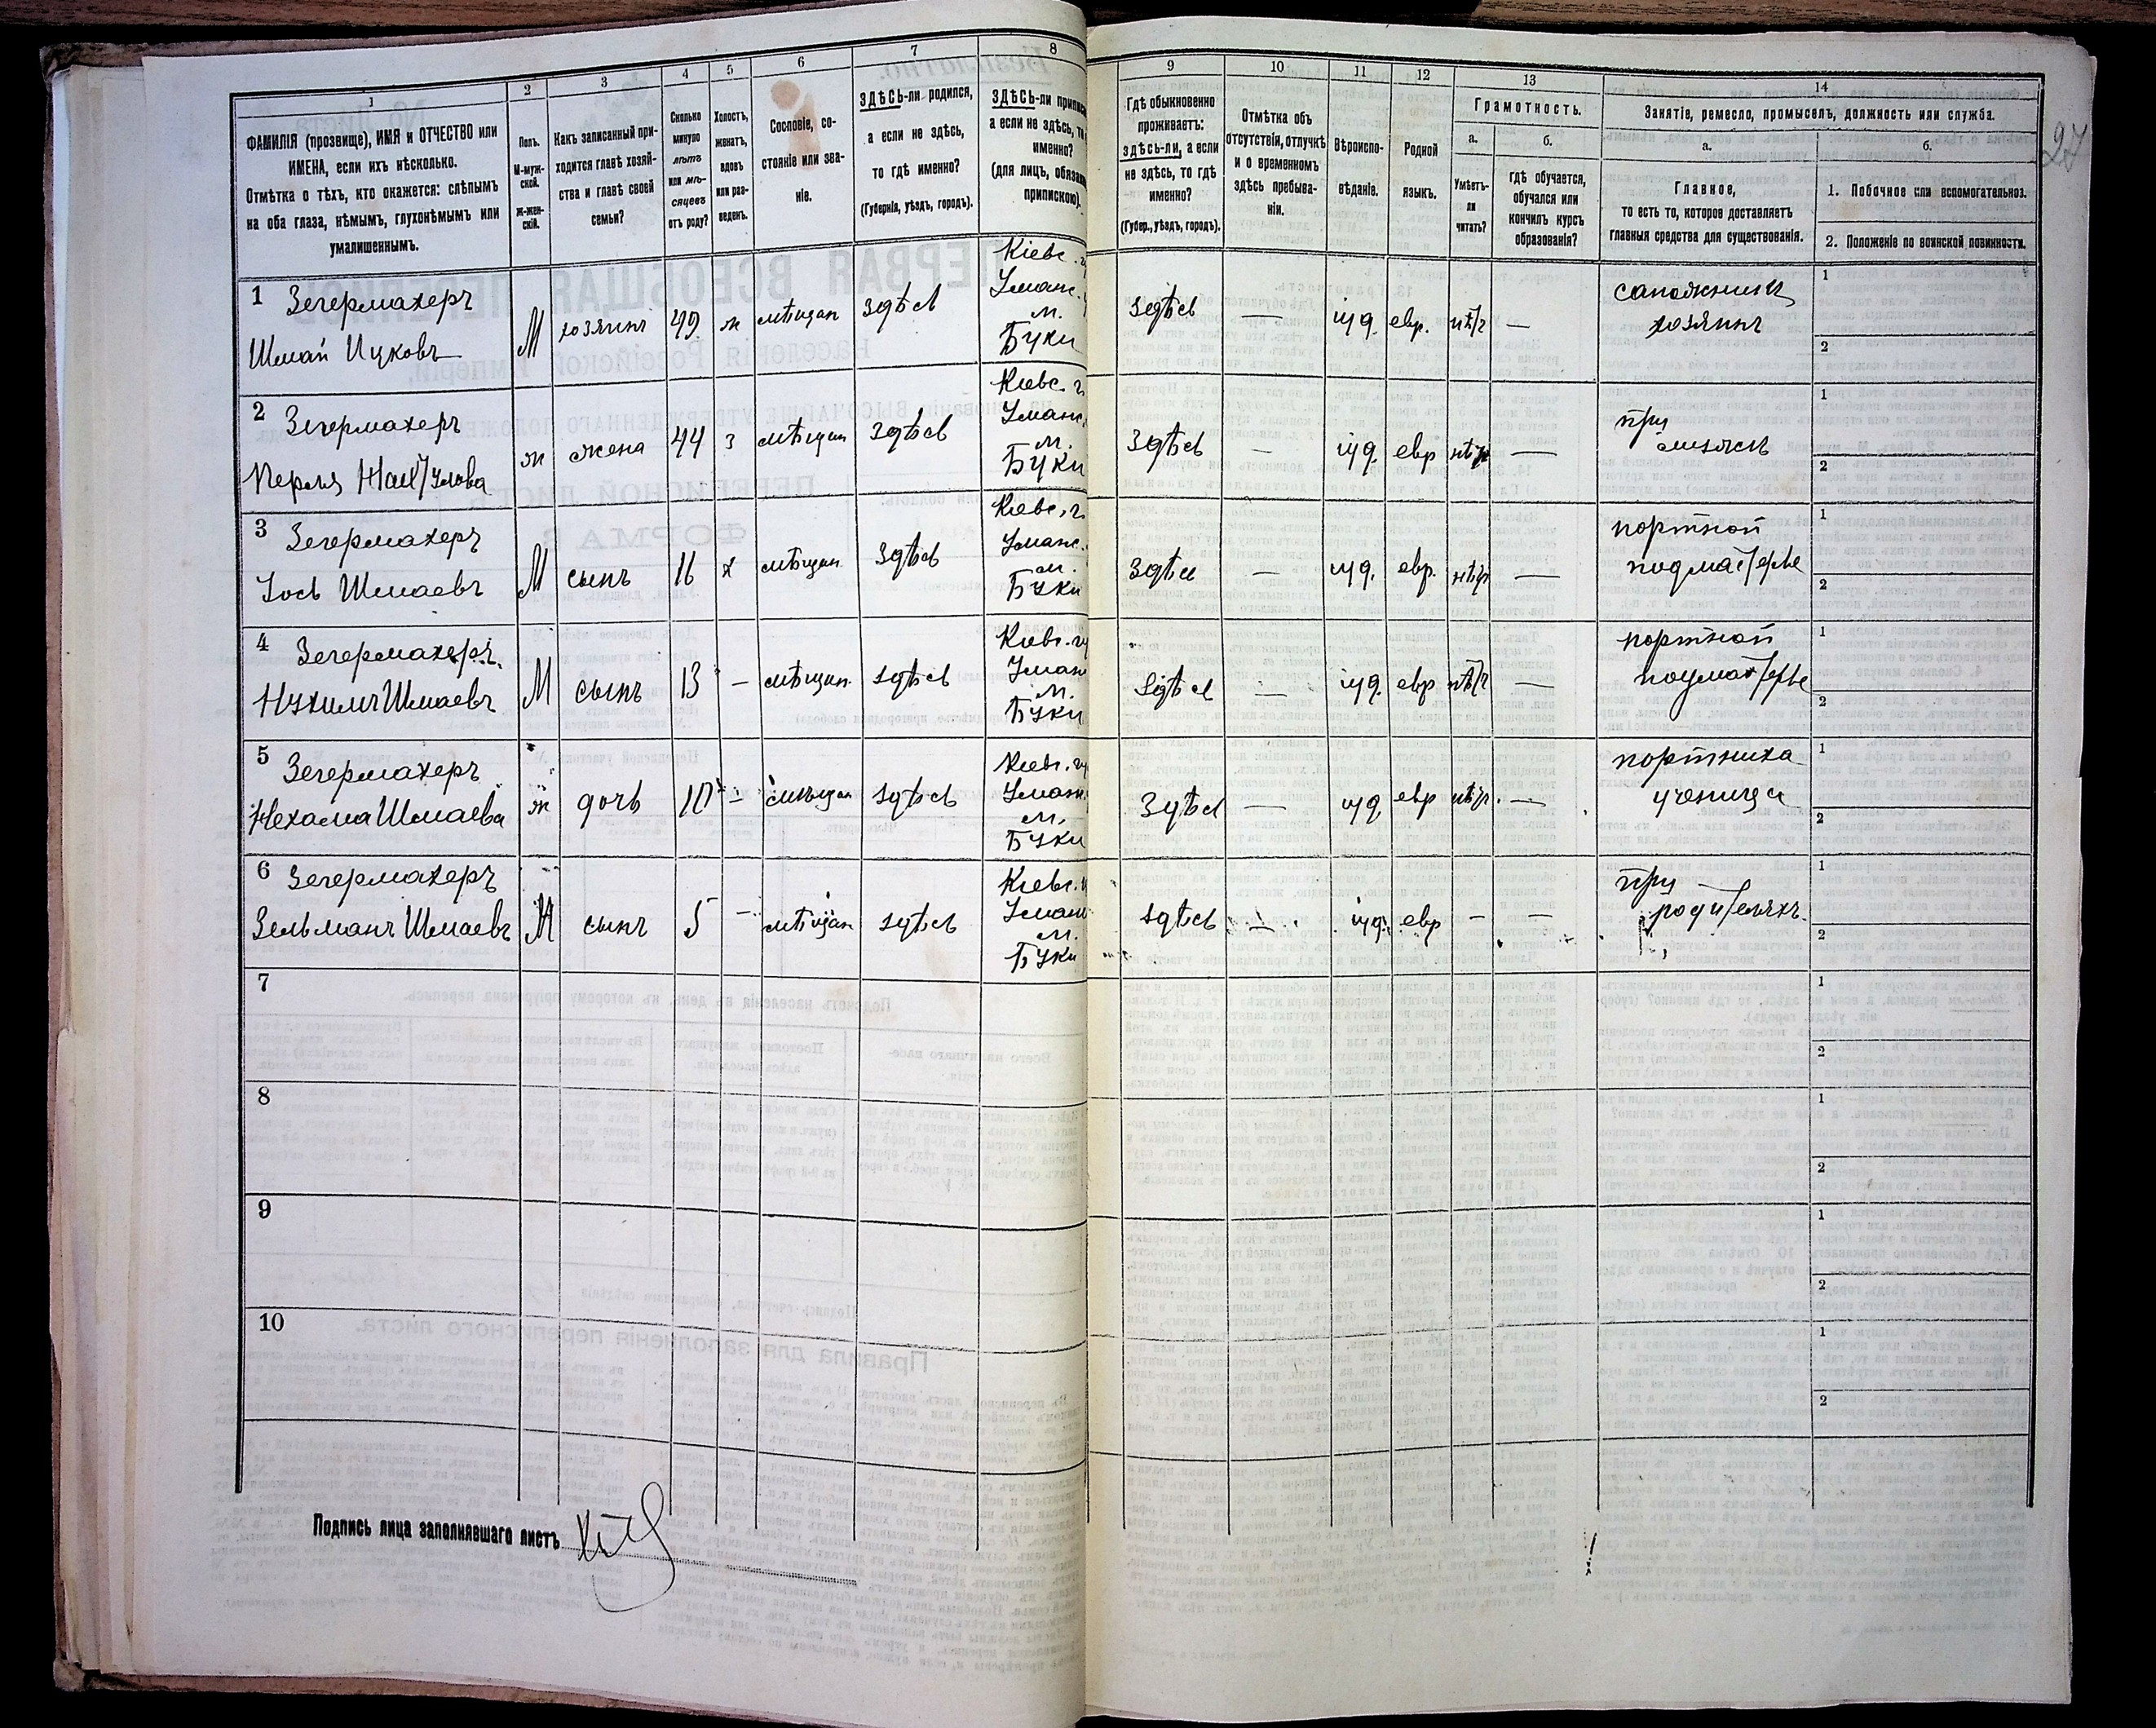 27
1
ФАМИЛІЯ (прозвище), ИМЯ и ОТЧЕСТВО или
ИМЕНА, если ихъ нѣсколько.
Отмѣтка о тѣхъ, кто окажется: слѣпымъ
на оба глаза, нѣмымъ, глухонѣмымъ или
умалишеннымъ.
2
Полъ.
М-муж-
ской.
Ж-жен-
скій.
3
Какъ записанный при-
ходится главѣ хозяй-
ства и главѣ своей
семьи?
4
Сколько
минуло
лѣтъ
или мѣ-
сяцевъ
отъ роду?
5
Холостъ,
женатъ,
вдовъ
или раз-
веденъ.
6
Сословіе, со-
стояніе или зва-
ніе.
7
ЗДѢСЬ-ли родился,
а если не здѣсь,
то гдѣ именно?
(Губернія, уѣздъ, городъ).
8
ЗДѢСЬ-ли
а если не здѣсь,
именно?
(для лицъ,
припискою).
9
Гдѣ обыкновенно
проживаетъ:
здѣсь-ли, а если
не здѣсь, то гдѣ
именно?
(Губер., уѣздъ, городъ).
10
Отмѣтка объ
отсутствіи, отлучкѣ
и о временномъ
здѣсь пребыва-
ніи.
11
Вѣроиспо-
вѣданіе.
12
Родной
языкъ.
13
Грамотность.
а.
Умѣетъ-
ли
читать?
б.
гдѣ обучается,
обучался или
кончилъ курсъ
образованія?
14
Занятіе, ремесло, промыселъ, должность или служба.
а.
Главное,
то есть то, которое доставляетъ
главныя средства для существованія.
б.
1. Побочное или вспомогательное.
2. Положеніе по воинской повинности.
1 Зегермахеръ
Шмай Ицковъ
М
хозяинъ
49
ж
мѣщан
здѣсь
Кіевс. г.
Уманс.
м.
Буки
здѣсь
—
іуд.
евр.
нѣт
—
сапожникъ
хозяинъ
1
2
2 Зегермахеръ
Перля
ж
жена
44
з
мѣщан
здѣсь
Кіевс. г.
Уманс.
м.
Буки
здѣсь
—
іуд.
евр
нѣт
—
при
1
2
3 Зегермахеръ
Іось Шмаевъ
М
сынъ
16
х
мѣщан
здѣсь
Кіевс. г.
Уманс.
м.
Буки
здѣсь
—
іуд.
евр.
нѣт
—
портной
подмастерье
1
2
4 Зегермахеръ
Нухимъ Шмаевъ
М
сынъ
13
—
мѣщан.
здѣсь
Кіевс. г.
Уман
м.
Буки
здѣсь
—
іуд.
евр
нѣт
—
портной
подмастерье
1
2
5 Зегермахеръ
Нехама Шмаева
ж
дочь
10
—
мѣщан
здѣсь
Кіевс. г.
Уман.
м.
Буки
здѣсь
—
іуд
евр
нѣт.
—
портниха
ученица
1
2
6 Зегермахеръ
Зельманъ Шмаевъ
М
сынъ
5
—
мѣщан
здѣсь
Кіевс. г.
Уман
м.
Буки
здѣсь
—
іуд.
евр
—
—
при
родителяхъ.
1
2
7
1
2
8
1
2
9
1
2
10
1
2
Подпись лица заполнявшаго листъ